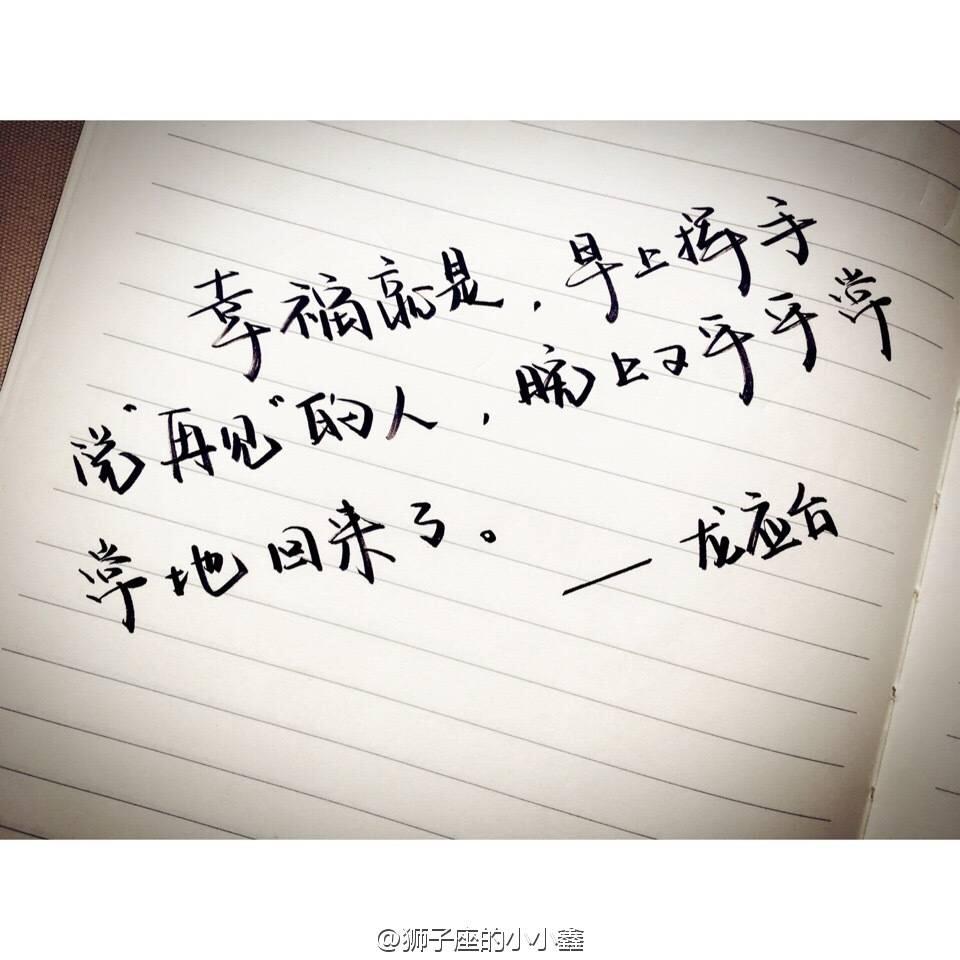 幸福就是，早上挥手
说“再见”的人，晚上又平平常
常地回来了。
——龙应台
@狮子座的小小鑫